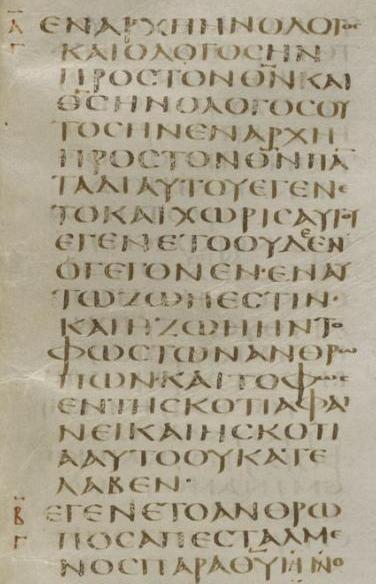 Α̅ ΕΝΑΡΧΗΗΝΟΛΟΓΟϹ
Γ ΚΑΙΟΛΟΓΟϹΗΝ
ΠΡΟϹΤΟΝΘ̅Ν̅ΚΑΙ
Θ̅Ϲ̅ΗΝΟΛΟΓΟϹΟΥ
ΤΟϹΗΝΕΝΑΡΧΗ
ΠΡΟϹΤΟΝΘ̅Ν̅ΠΑ̅
ΤΑΔΙΑΥΤΟΥΕΓΕΝΕ
ΤΟΚΑΙΧΩΡΙϹΑΥΤΟΥ
ΕΓΕΝΕΤΟΟΥΔΕΕΝ
ΟΓΕΓΟΝΕΝ·ΕΝΑΥ
ΤΩΖΩΗΕϹΤΙΝ·
ΚΑΙΗΖΩΗΗΝΤΟ
ΦΩϹΤΩΝΑΝΘΡΩ
ΠΩΝ·ΚΑΙΤΟΦΩϹ
ΕΝΤΗϹΚΟΤΙΑΦΑΙ
ΝΕΙΚΑΙΗϹΚΟΤΙ
ΑΑΥΤΟΟΥΚΑΤΕ
ΛΑΒΕΝ·
Β̅ ΕΓΕΝΕΤΟΑΝΘΡΩ
Γ ΠΟϹΑΠΕϹΤΑΛΜΕ
ΝΟϹΠΑΡΑΘ̅Υ̅ΗΝΟ